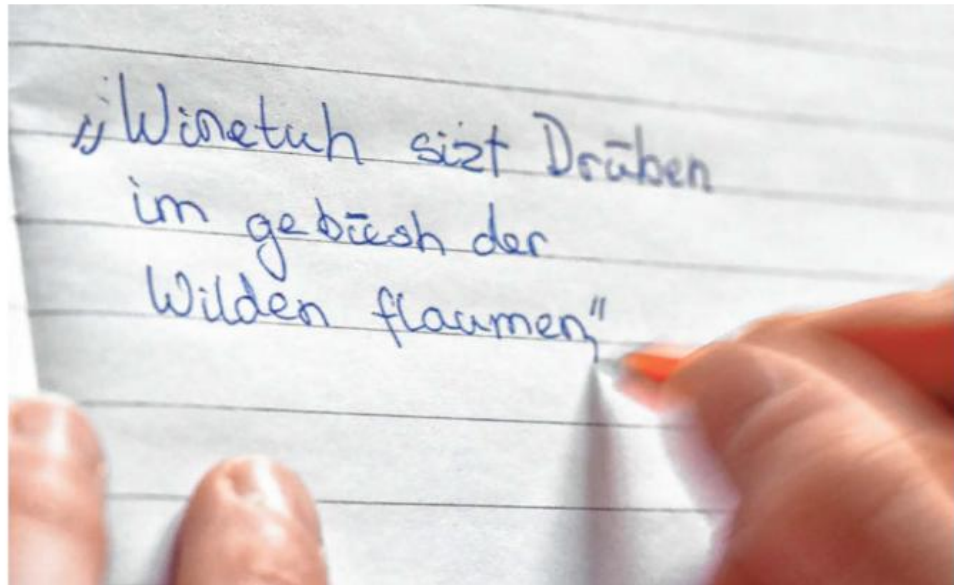 „Winetuh sizt Drüben
im gebüsh der
Wilden flaumen"